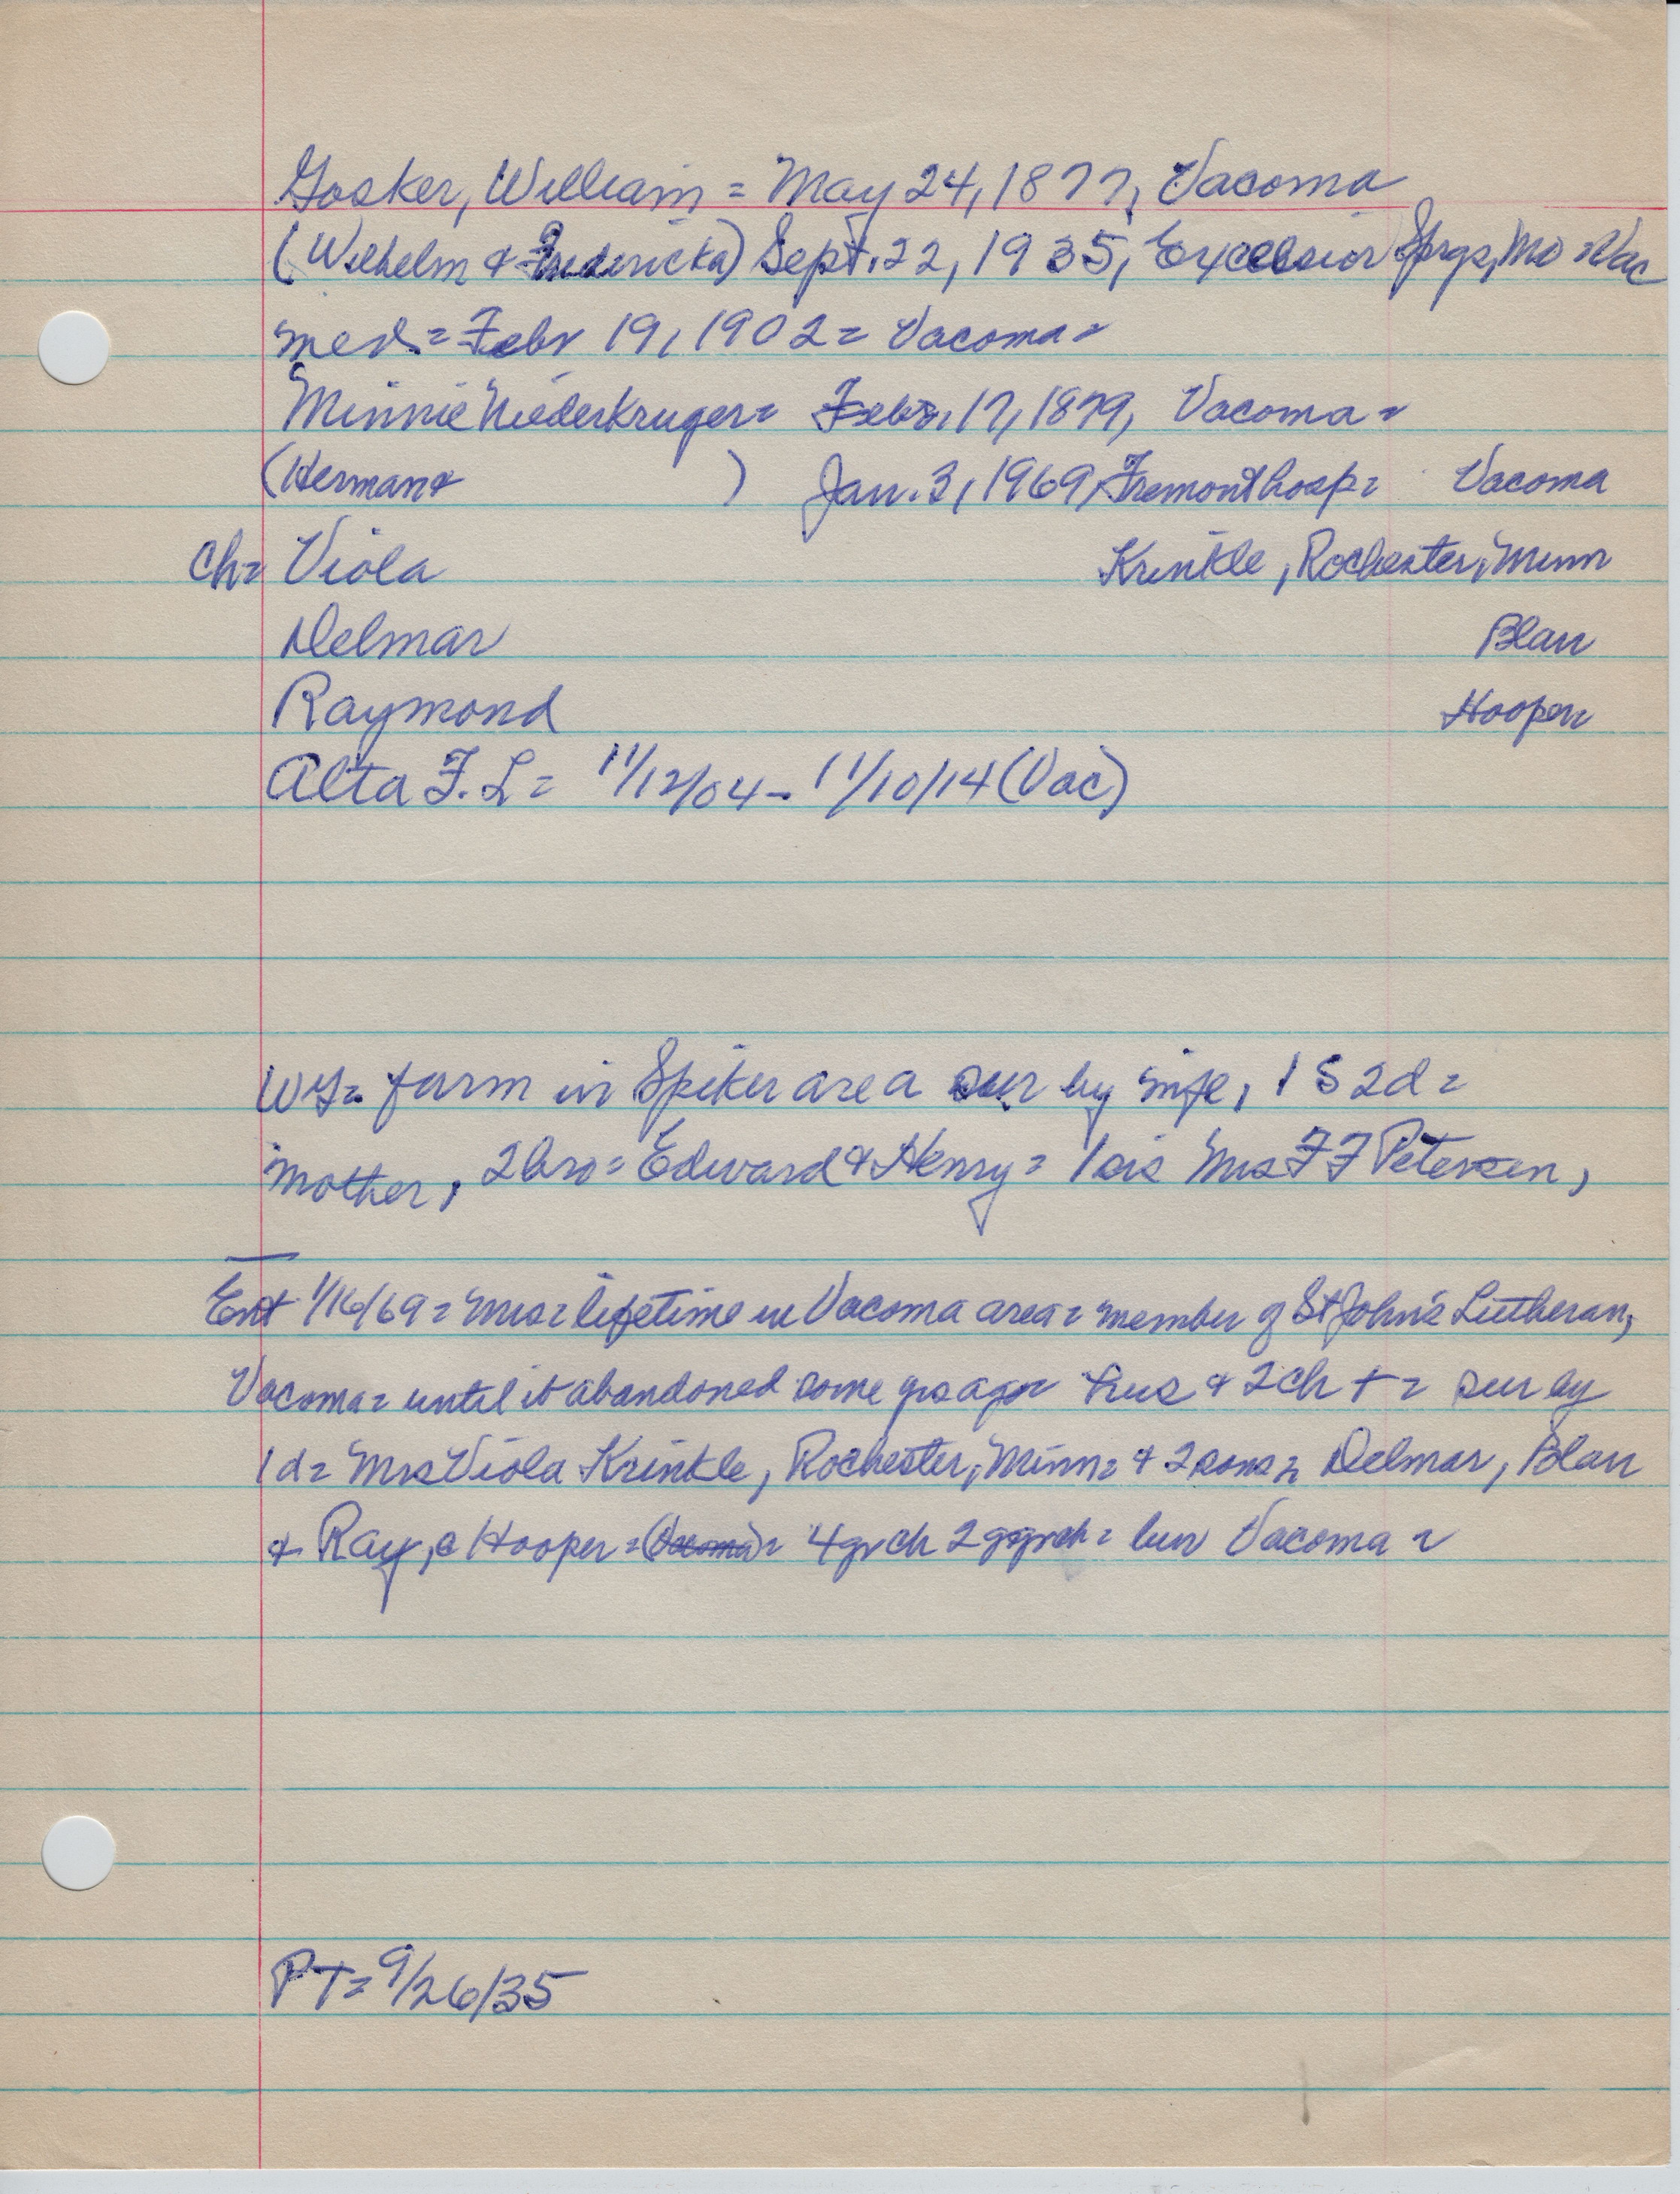 Gosker, William = May 24, 1877, Vacoma
(Wilhelm & Fredericka) Sept. 22, 1935, Excelsior Sprgs, Mo = Vac
med = Febr 19, 1902 = Vacoma =
Minnie Niederkruger = Febr. 17, 1879, Vacoma =
(Herman & ) Jan. 3, 1969, Fremont hosp = Vacoma
Ch = Viola Krinkle, Rochester, Minn
Delmar Blair
Raymond Hooper
Alta F. L = 11/12/04 - 11/10/14 (Vac)
WG = farm in Spiker area sur by wife, 1 S 2d =
mother, 2 bro = Edward & Henry = 1 sis Mrs F F Petersen,
Ent 1/16/69 = Mrs = lifetime in Vacoma area = member of St John's Lutheran,
Vacoma = until it abandoned some yrs ago = hus & 2 ch + = sur by
1 d = Mrs Viola Krinkle, Rochester, Minn = & 2 sons = Delmar, Blair
& Ray, Hooper = (Vacoma) = 4 gr ch 2 ggrch = bur Vacoma =
PT = 9/26/35